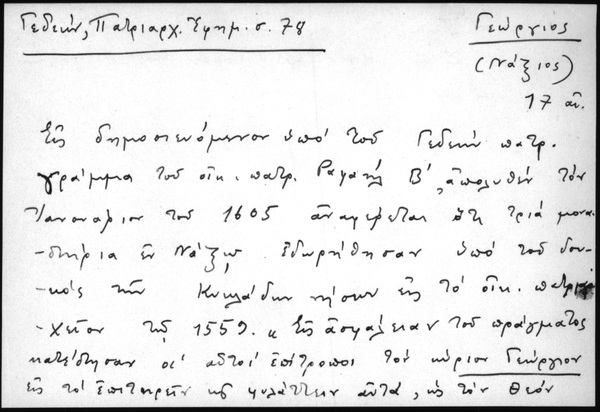 Γεδεών, Πατριαρχ. Ἐφημ. σ. 78
Γεώργιος
(Νάξιος)
17 αἰ.
Εἰς δημοσιευόμενον ὑπό τοῦ Γεδεών πατρ.
γράμμα τοῦ οἰκ. πατρ. Ραφαήλ Β', ἀπολυθέν τόν
Ἰανουάριον τοῦ 1605 ἀναφέρεται ὅτι τρία μονα-
-στήρια ἐν Νάξῳ ἐδωρήθησαν ὑπό τοῦ δου-
-κός τῶν Κυκλάδων νήσων εἰς τό οἰκ. πατριαρ-
-χεῖον τῷ 1559. «Εἰς ἀσφάλειαν τοῦ πράγματος
κατέστησαν οἱ αὐτοί ἐπίτροποι τόν κύριον Γεώργιον
εἰς τό ἐπιτηρεῖν καί φυλάττειν αὐτά, ὡς τόν Θεόν